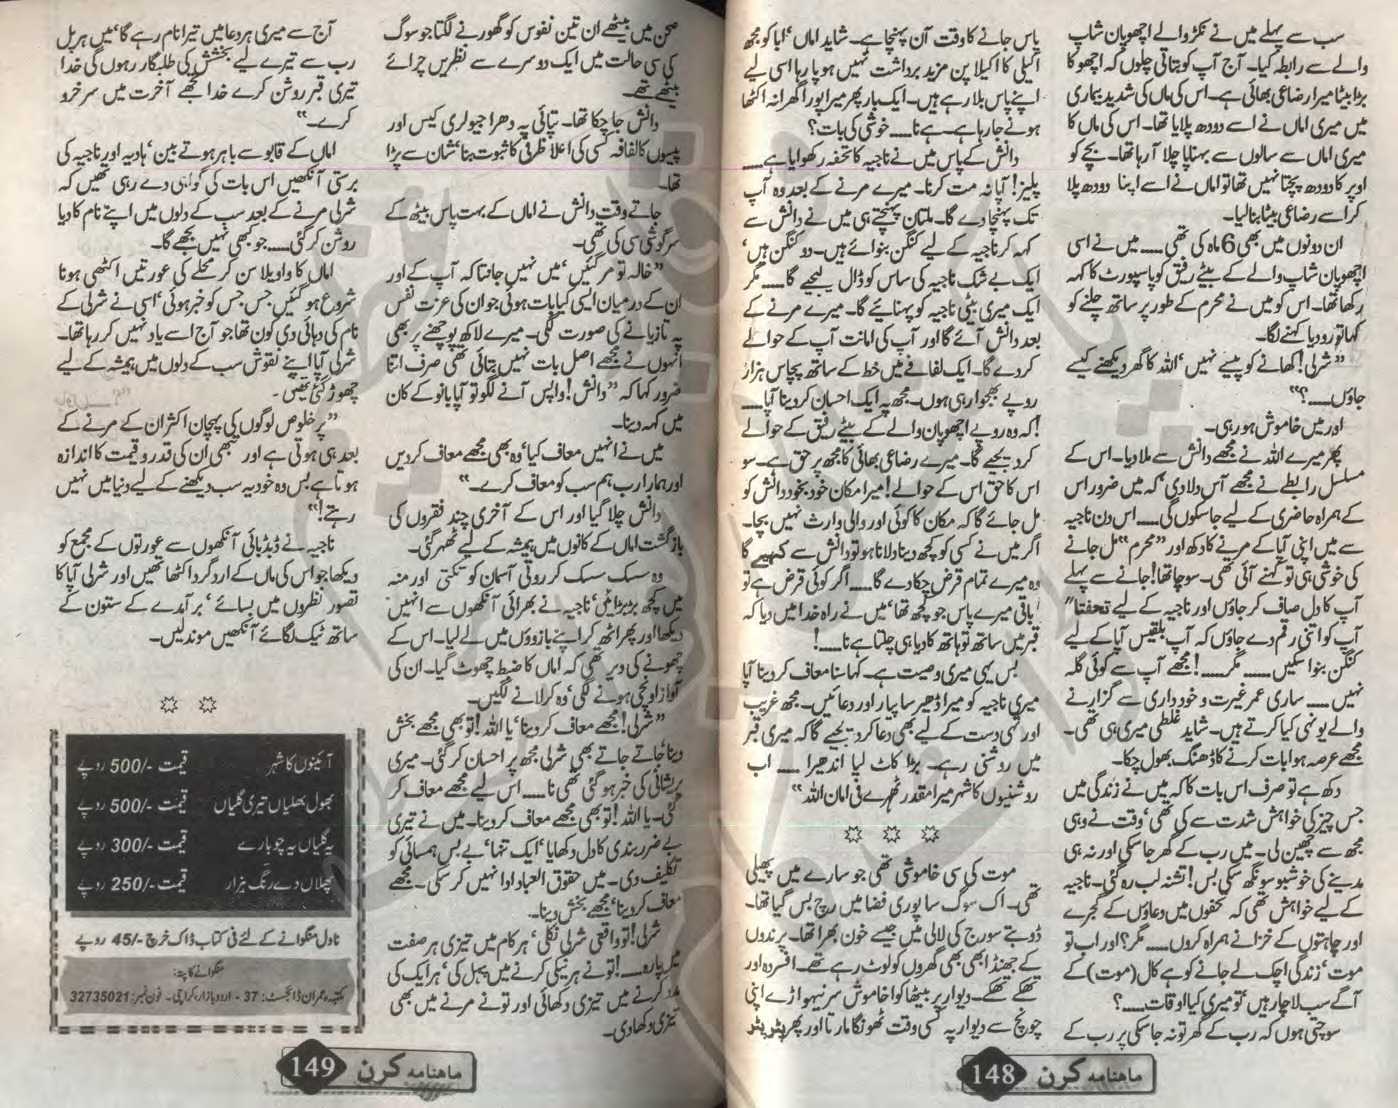 سب سے پہلے میں نے نکڑ والے اچھو پان شاپ
والے سے رابطہ کیا۔ آج آپ کو بتاتی چلوں کہ اچھو کا
بڑا بیٹا میرا رضاعی بھائی ہے۔ اس کی ماں کی شدید بیماری
میں میری اماں نے اسے دودھ پلایا تھا۔ اس کی ماں کا
میری اماں سے سالوں سے بہناپا چلا آ رہا تھا۔ بچے کو
اوپر کا دودھ پچتا نہیں تھا تو اماں نے اسے اپنا دودھ پلا
کر اسے رضاعی بیٹا بنا لیا۔
ان دونوں میں بھی 6 ماہ کی تھی ۔۔۔۔ میں نے اسی
اچھو پان شاپ والے کے بیٹے رفیق کو پاسپورٹ کا کہہ
رکھا تھا۔ اس کو میں نے محرم کے طور پر ساتھ چلنے کو
کہا تو رو دیا کہنے لگا۔
”شرلی! کھانے کو پیسے نہیں‘ اللہ کا گھر دیکھنے کیسے
جاؤں ۔۔۔۔؟“
اور میں خاموش ہو رہی۔
پھر میرے اللہ نے مجھے دانش سے ملا دیا۔ اس کے
مسلسل رابطے نے مجھے آس دلا دی‘ کہ میں ضرور اس
کے ہمراہ حاضری کے لیے جا سکوں گی ۔۔۔۔ اس دن ناجیہ
سے میں اپنی آپا کے مرنے کا دکھ اور ”محرم“ مل جانے
کی خوشی ہی تو کہنے آئی تھی۔ سوچا تھا! جانے سے پہلے
آپ کا دل صاف کر جاؤں اور ناجیہ کے لیے تحفتا“
آپ کو اتنی رقم دے جاؤں کہ آپ بلقیس آپا کے لیے
کنگن بنوا سکیں ۔۔۔۔ مگر ۔۔۔۔! مجھے آپ سے کوئی گلہ
نہیں ۔۔۔۔ ساری عمر غیرت و خودداری سے گزارنے
والے یونہی کیا کرتے ہیں۔ شاید غلطی میری ہی تھی۔
مجھے عرصہ ہوا بات کرنے کا ڈھنگ بھول چکا۔
دکھ ہے تو صرف اس بات کا کہ میں نے زندگی میں
جس چیز کی خواہش شدت سے کی تھی‘ وقت نے وہی
مجھ سے چھین لی۔ میں رب کے گھر جا سکی اور نہ ہی
مدینے کی خوشبو سونگھ سکی بس! تشنہ لب رہ گئی۔ ناجیہ
کے لیے خواہش تھی کہ تحفوں میں دعاؤں کے گجرے
اور چاہتوں کے خزانے ہمراہ کروں ۔۔۔۔ مگر؟ اور اب تو
موت‘ زندگی اچک لے جانے کو ہے کال (موت) کے
آگے سب لاچار ہیں‘ تو میری کیا اوقات ۔۔۔۔؟
سوچتی ہوں کہ رب کے گھر تو نہ جا سکی پر رب کے
پاس جانے کا وقت آن پہنچا ہے۔ شاید اماں‘ ابا کو مجھ
اکیلی کا اکیلا پن مزید برداشت نہیں ہو پا رہا اسی لیے
اپنے پاس بلا رہے ہیں۔ ایک بار پھر میرا پورا گھرانہ اکٹھا
ہونے جا رہا ہے۔ ہے نا ۔۔۔۔ خوشی کی بات؟
دانش کے پاس میں نے ناجیہ کا تحفہ رکھوایا ہے ۔۔۔۔
پلیز! آپا نہ مت کرنا۔ میرے مرنے کے بعد وہ آپ
تک پہنچا دے گا۔ ملتان پہنچتے ہی میں نے دانش سے
کہہ کر ناجیہ کے لیے کنگن بنوائے ہیں۔ دو کنگن ہیں‘
ایک بے شک ناجیہ کی ساس کو ڈال لیجیے گا ۔۔۔۔ مگر
ایک میری بیٹی ناجیہ کو پہنائیے گا۔ میرے مرنے کے
بعد دانش آئے گا اور آپ کی امانت آپ کے حوالے
کر دے گا۔ ایک لفافے میں خط کے ساتھ پچاس ہزار
روپے بھجوا رہی ہوں۔ مجھ پہ ایک احسان کر دینا آپا ۔۔۔۔
! کہ وہ روپے اچھو پان والے کے بیٹے رفیق کے حوالے
کر دیجیے گا۔ میرے رضاعی بھائی کا مجھ پر حق ہے۔ سو
اس کا حق اس کے حوالے! میرا مکان خود بخود دانش کو
مل جائے گا کہ مکان کا کوئی اور والی وارث نہیں بچا۔
اگر میں نے کسی کو کچھ دینا دلانا ہو تو دانش سے کہیے گا
وہ میرے تمام قرض چکا دے گا ۔۔۔۔ اگر کوئی قرض ہے تو
باقی میرے پاس جو کچھ تھا‘ میں نے راہ خدا میں دیا کہ
قبر میں ساتھ تو ہاتھ کا دیا ہی چلتا ہے نا ۔۔۔۔!
بس یہی میری وصیت ہے۔ کہا سنا معاف کر دینا آپا
میری ناجیہ کو میرا ڈھیر سا پیار اور دعائیں۔ مجھ غریب
اور تہی دست کے لیے بھی دعا کر دیجیے گا کہ میری قبر
میں روشنی رہے۔ بڑا کاٹ لیا اندھیرا ۔۔۔۔ اب
روشنیوں کا شہر میرا مقدر ٹھہرے فی امان اللہ“
موت کی سی خاموشی تھی جو سارے میں پھیلی
تھی۔ اک سوگ سا پوری فضا میں رچ بس گیا تھا۔
ڈوبتے سورج کی لالی میں جیسے خون بھرا تھا۔ پرندوں
کے جھنڈ ابھی بھی گھروں کو لوٹ رہے تھے۔ افسردہ اور
تھکے تھکے۔ دیوار پر بیٹھا کوا خاموش سر نیہوڑائے اپنی
چونچ سے دیوار پہ کسی وقت ٹھونگا مارتا اور پھر ٹپٹر ٹپٹر
ماہنامہ کرن 148
صحن میں بیٹھے ان تین نفوس کو گھورنے لگتا جو سوگ
کی سی حالت میں ایک دوسرے سے نظریں چرائے
بیٹھے تھے۔
دانش جا چکا تھا۔ تپائی پہ دھرا جیولری کیس اور
پیسوں کا لفافہ کسی کی اعلا ظرفی کا ثبوت بنا‘ شان سے پڑا
تھا۔
جاتے وقت دانش نے اماں کے بہت پاس بیٹھ کے
سرگوشی سی کی تھی۔
”خالہ تو مر گئیں‘ میں نہیں جانتا کہ آپ کے اور
ان کے درمیان ایسی کیا بات ہوئی جو ان کی عزت نفس
پہ تازیانے کی صورت لگی۔ میرے لاکھ پوچھنے پر بھی
انہوں نے مجھے اصل بات نہیں بتائی تھی صرف اتنا
ضرور کہا کہ ”دانش! واپس آنے لگو تو آپا بانو کے کان
میں کہہ دینا۔
میں نے انہیں معاف کیا‘ وہ بھی مجھے معاف کر دیں
اور ہمارا رب ہم سب کو معاف کرے۔“
دانش چلا گیا اور اس کے آخری چند فقروں کی
بازگشت اماں کے کانوں میں ہمیشہ کے لیے ٹھہر گئی۔
وہ سسک سسک کر روتی آسمان کو تکتی اور منہ
میں کچھ بڑبڑاتی‘ ناجیہ نے بھرائی آنکھوں سے انہیں
دیکھا اور پھر اٹھ کر اپنے بازوؤں میں لے لیا۔ اس کے
چھونے کی دیر تھی کہ اماں کا ضبط چھوٹ گیا۔ ان کی
آواز اونچی ہونے لگی‘ وہ کرلانے لگیں۔
”شرلی! مجھے معاف کر دینا‘ یا اللہ! تو بھی مجھے بخش
دینا‘ جاتے جاتے بھی شرلی مجھ پر احسان کر گئی۔ میری
پریشانی کی خبر ہو گئی تھی نا ۔۔۔۔ اس لیے مجھے معاف کر
گئی۔ یا اللہ! تو بھی مجھے معاف کر دینا۔ میں نے تیری
بے ضرر بندی کا دل دکھایا‘ ایک تنہا‘ بے بس ہمسائی کو
تکلیف دی۔ میں حقوق العباد ادا نہیں کر سکی۔ مجھے
معاف کر دینا‘ مجھے بخش دینا۔
شرلی! تو واقعی شرلی نکلی‘ ہر کام میں تیزی ہر صفت
میں پارہ ۔۔۔۔! تو نے ہر نیکی کرنے میں پہل کی‘ ہر ایک کی
مدد کرنے میں تیزی دکھائی اور تو نے مرنے میں بھی
تیزی دکھا دی۔
آج سے میری ہر دعا میں تیرا نام رہے گا‘ میں ہر پل
رب سے تیرے لیے بخشش کی طلبگار رہوں گی خدا
تیری قبر روشن کرے خدا تجھے آخرت میں سرخرو
کرے۔“
اماں کے قابو سے باہر ہوتے بین‘ ہادیہ اور ناجیہ کی
برستی آنکھیں اس بات کی گواہی دے رہی تھیں کہ
شرلی مرنے کے بعد سب کے دلوں میں اپنے نام کا دیا
روشن کر گئی ۔۔۔۔ جو کبھی نہیں بجھے گا۔
اماں کا واویلا سن کر محلے کی عورتیں اکٹھی ہونا
شروع ہو گئیں جس جس کو خبر ہوئی‘ اسی نے شرلی کے
نام کی دہائی دی کون تھا جو آج اسے یاد نہیں کر رہا تھا۔
شرلی آپا اپنے نقوش سب کے دلوں میں ہمیشہ کے لیے
چھوڑ گئی تھیں۔
”پر خلوص لوگوں کی پہچان اکثر ان کے مرنے کے
بعد ہی ہوتی ہے اور تبھی ان کی قدر و قیمت کا اندازہ
ہوتا ہے بس وہ خود یہ سب دیکھنے کے لیے دنیا میں نہیں
رہتے!“
ناجیہ نے ڈبڈبائی آنکھوں سے عورتوں کے مجمع کو
دیکھا جو اس کی ماں کے ارد گرد اکٹھا تھیں اور شرلی آپا کا
تصور نظروں میں بسائے‘ برآمدے کے ستون کے
ساتھ ٹیک لگائے آنکھیں موند لیں۔
آئینوں کا شہر قیمت -/500 روپے
بھول بھلیاں تیری گلیاں قیمت -/500 روپے
یہ گلیاں یہ چوبارے قیمت -/300 روپے
پھلاں دے رنگ ہزار قیمت -/250 روپے
ناول منگوانے کے لئے فی کتاب ڈاک خرچ -/45 روپے
منگوانے کا پتہ:
مکتبہ عمران ڈائجسٹ: 37 - اردو بازار، کراچی۔ فون نمبر: 32735021
ماہنامہ کرن 149